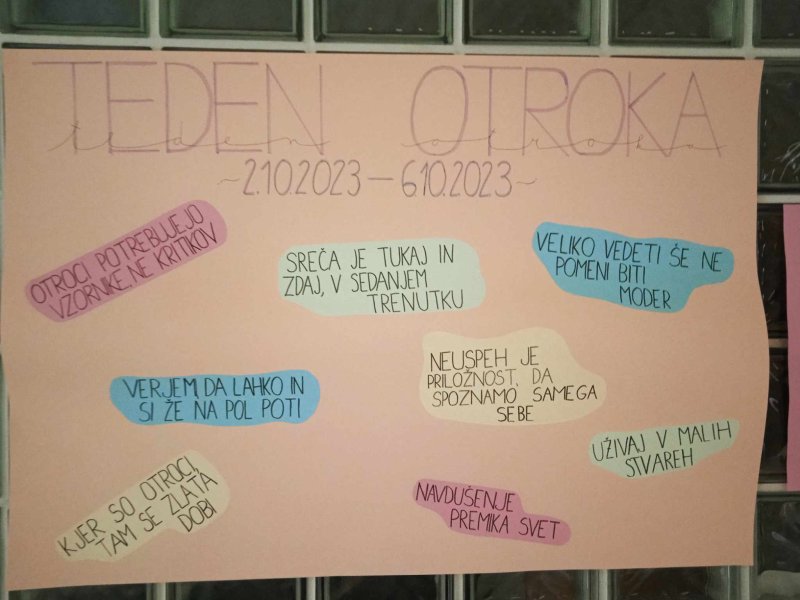 TEDEN OTROKA
teden otroka
~2.10.2023 – 6.10.2023~
OTROCI POTREBUJEJO
VZORNIKE, NE KRITIKOV
SREČA JE TUKAJ IN
ZDAJ, V SEDANJEM
TRENUTKU
VELIKO VEDETI ŠE NE
POMENI BITI
MODER
VERJEMI, DA LAHKO IN
SI ŽE NA POL POTI
NEUSPEH JE
PRILOŽNOST, DA
SPOZNAMO SAMEGA
SEBE
UŽIVAJ V MALIH
STVAREH
KJER SO OTROCI,
TAM SE ZLATA
DOBI
NAVDUŠENJE
PREMIKA SVET